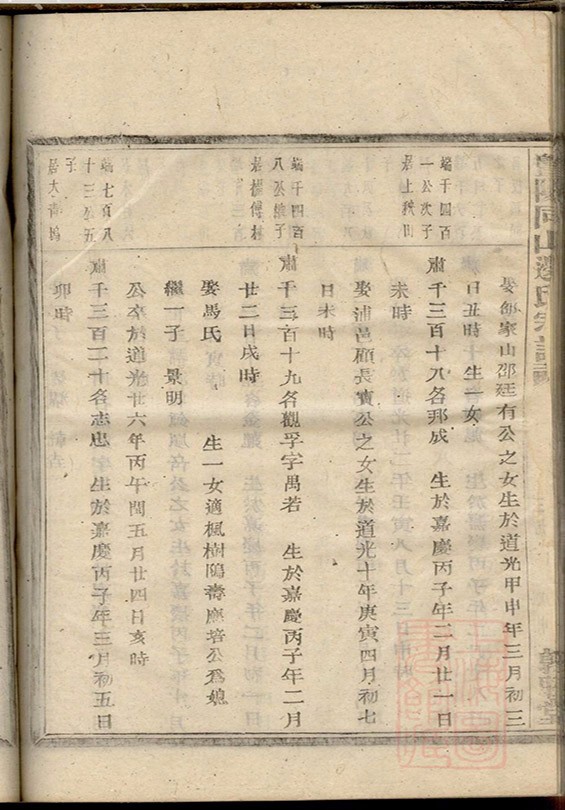 娶鄔家山邵廷有公之女生於道光甲申年三月初三
日丑時 生一女
端千四百
一公次子
居上秧田
肅千三百十八名邦成 生於嘉慶丙子年二月廿一日
未時
娶浦邑碩長賓公之女生於道光十年庚寅四月初七
日未時
端千四百
八公繼子
居櫃傅林
肅千三百十九名觀孚字禺若 生於嘉慶丙子年二月
廿二日戌時
娶馬氏 生一女適楓樹隖壽應培公為媳
繼一子 景明
公卒於道光廿六年丙午閏五月廿四日亥時
端七百八
十三公五
子
居大青塢
肅千三百二十名志忠 生於嘉慶丙子年三月初五日
卯時